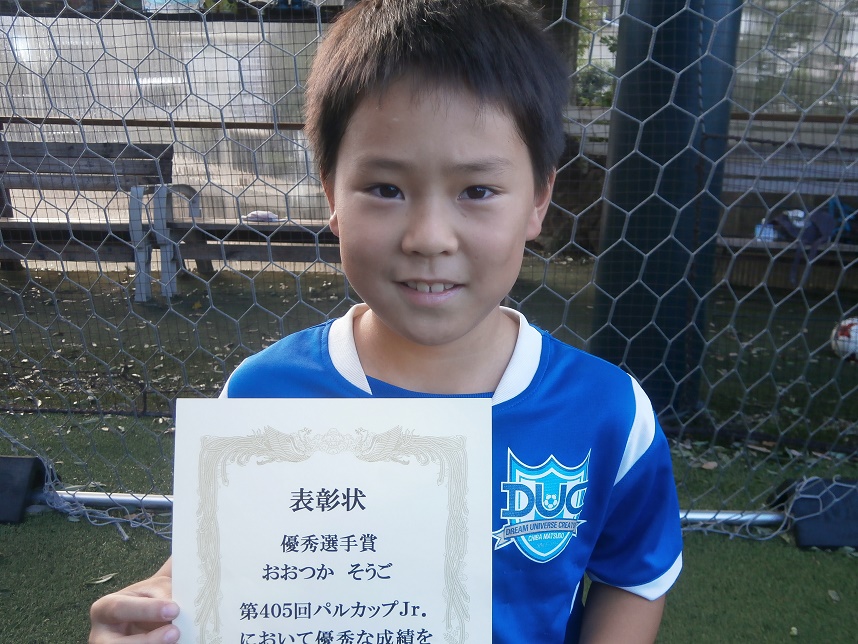 表彰状
優秀選手賞
おおつか そうご
第405回パルカップJr.
において優秀な成績を
DUC
DREAM UNIVERSE CREATE
CHIBA MATSUDO